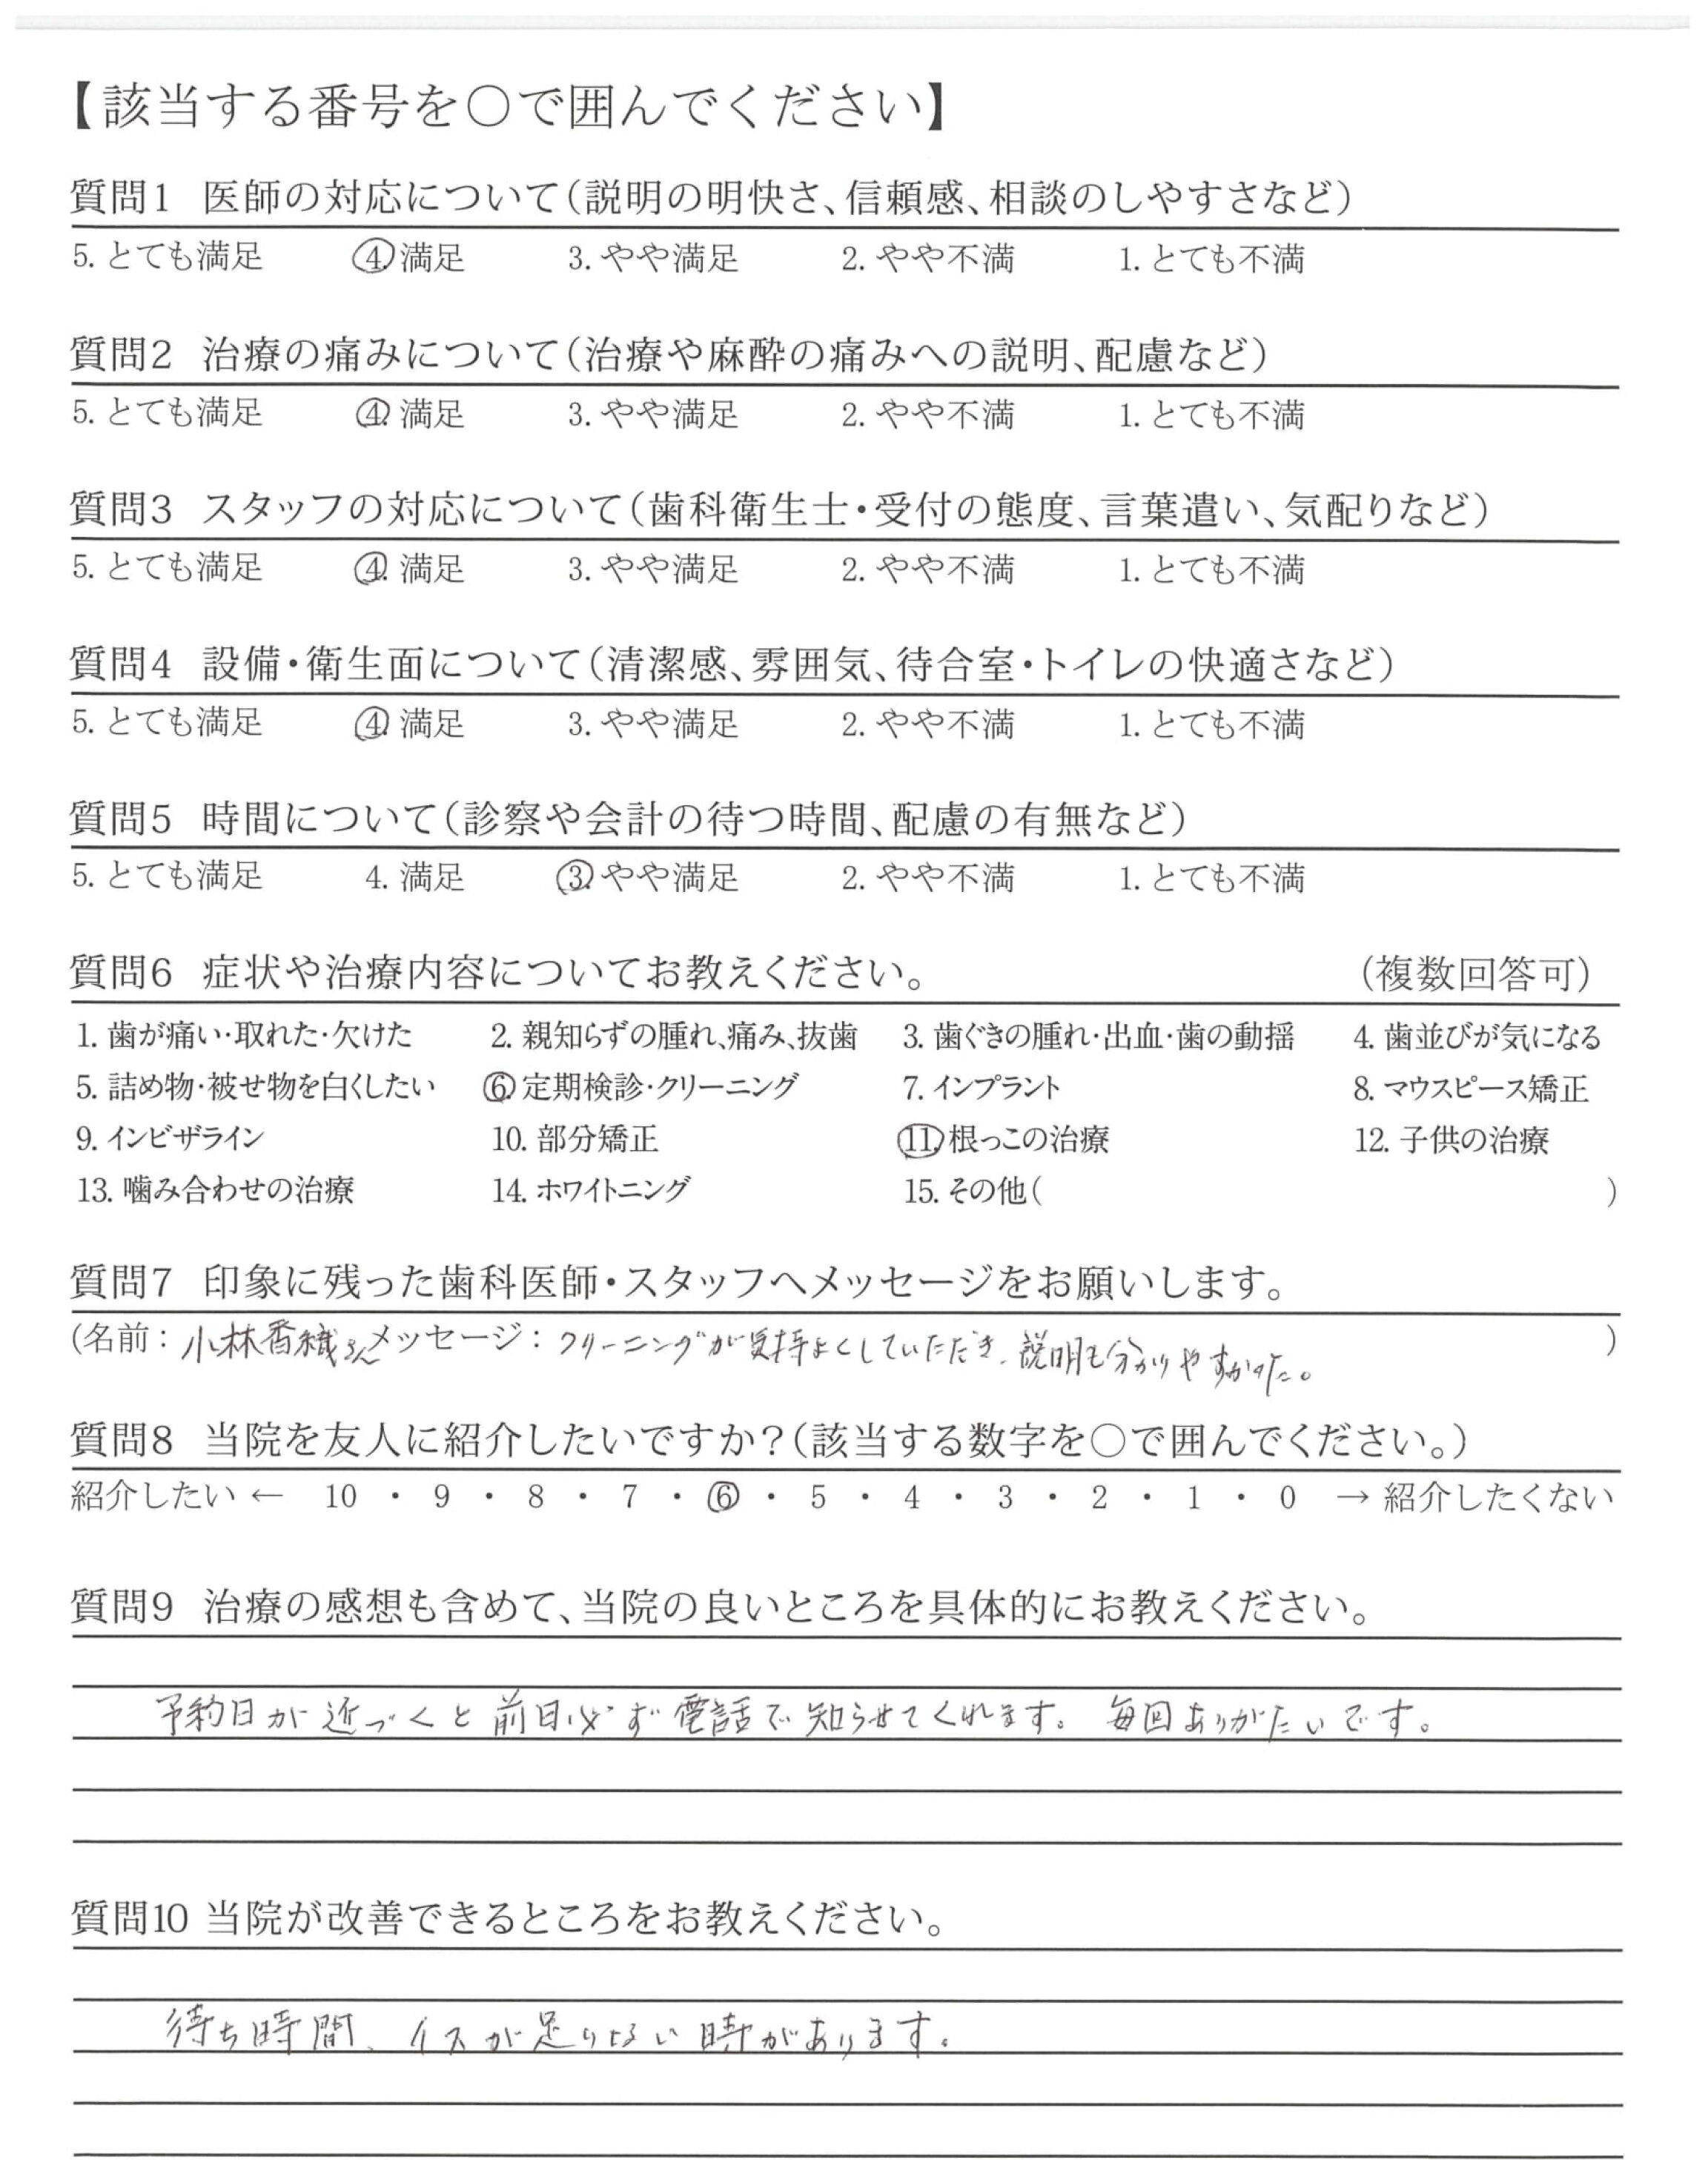 【該当する番号を○で囲んでください】
質問1 医師の対応について(説明の明快さ、信頼感、相談のしやすさなど)
5. とても満足 4. 満足 3. やや満足 2. やや不満 1. とても不満
質問2 治療の痛みについて(治療や麻酔の痛みへの説明、配慮など)
5. とても満足 4. 満足 3. やや満足 2. やや不満 1. とても不満
質問3 スタッフの対応について(歯科衛生士・受付の態度、言葉遣い、気配りなど)
5. とても満足 4. 満足 3. やや満足 2. やや不満 1. とても不満
質問4 設備・衛生面について(清潔感、雰囲気、待合室・トイレの快適さなど)
5. とても満足 4. 満足 3. やや満足 2. やや不満 1. とても不満
質問5 時間について(診察や会計の待つ時間、配慮の有無など)
5. とても満足 4. 満足 3. やや満足 2. やや不満 1. とても不満
質問6 症状や治療内容についてお教えください。 (複数回答可)
1. 歯が痛い・取れた・欠けた 2. 親知らずの腫れ、痛み、抜歯 3. 歯ぐきの腫れ・出血・歯の動揺 4. 歯並びが気になる
5. 詰め物・被せ物を白くしたい 6. 定期検診・クリーニング 7. インプラント 8. マウスピース矯正
9. インビザライン 10. 部分矯正 11. 根っこの治療 12. 子供の治療
13. 噛み合わせの治療 14. ホワイトニング 15. その他( )
質問7 印象に残った歯科医師・スタッフへメッセージをお願いします。
(名前：小林香織さんメッセージ：クリーニングが気持よくしていただき、説明も分かりやすかった。 )
質問8 当院を友人に紹介したいですか？(該当する数字を○で囲んでください。)
紹介したい ← 10 ・ 9 ・ 8 ・ 7 ・ 6 ・ 5 ・ 4 ・ 3 ・ 2 ・ 1 ・ 0 → 紹介したくない
質問9 治療の感想も含めて、当院の良いところを具体的にお教えください。
予約日が近づくと前日必ず電話で知らせてくれます。毎回ありがたいです。
質問10 当院が改善できるところをお教えください。
待ち時間、イスが足りない時があります。